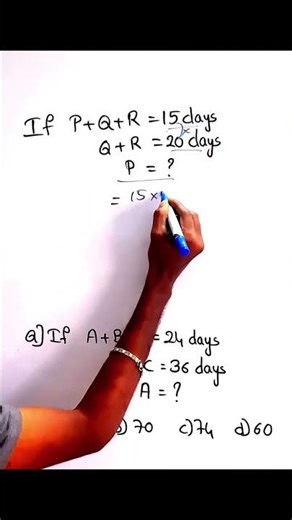 If P+Q+R = 15 days
Q+R = 20 days
P = ?
= 15 x
Q] If A+B = 24 days
C = 36 days
A = ?
b) 70 c) 74 d) 60